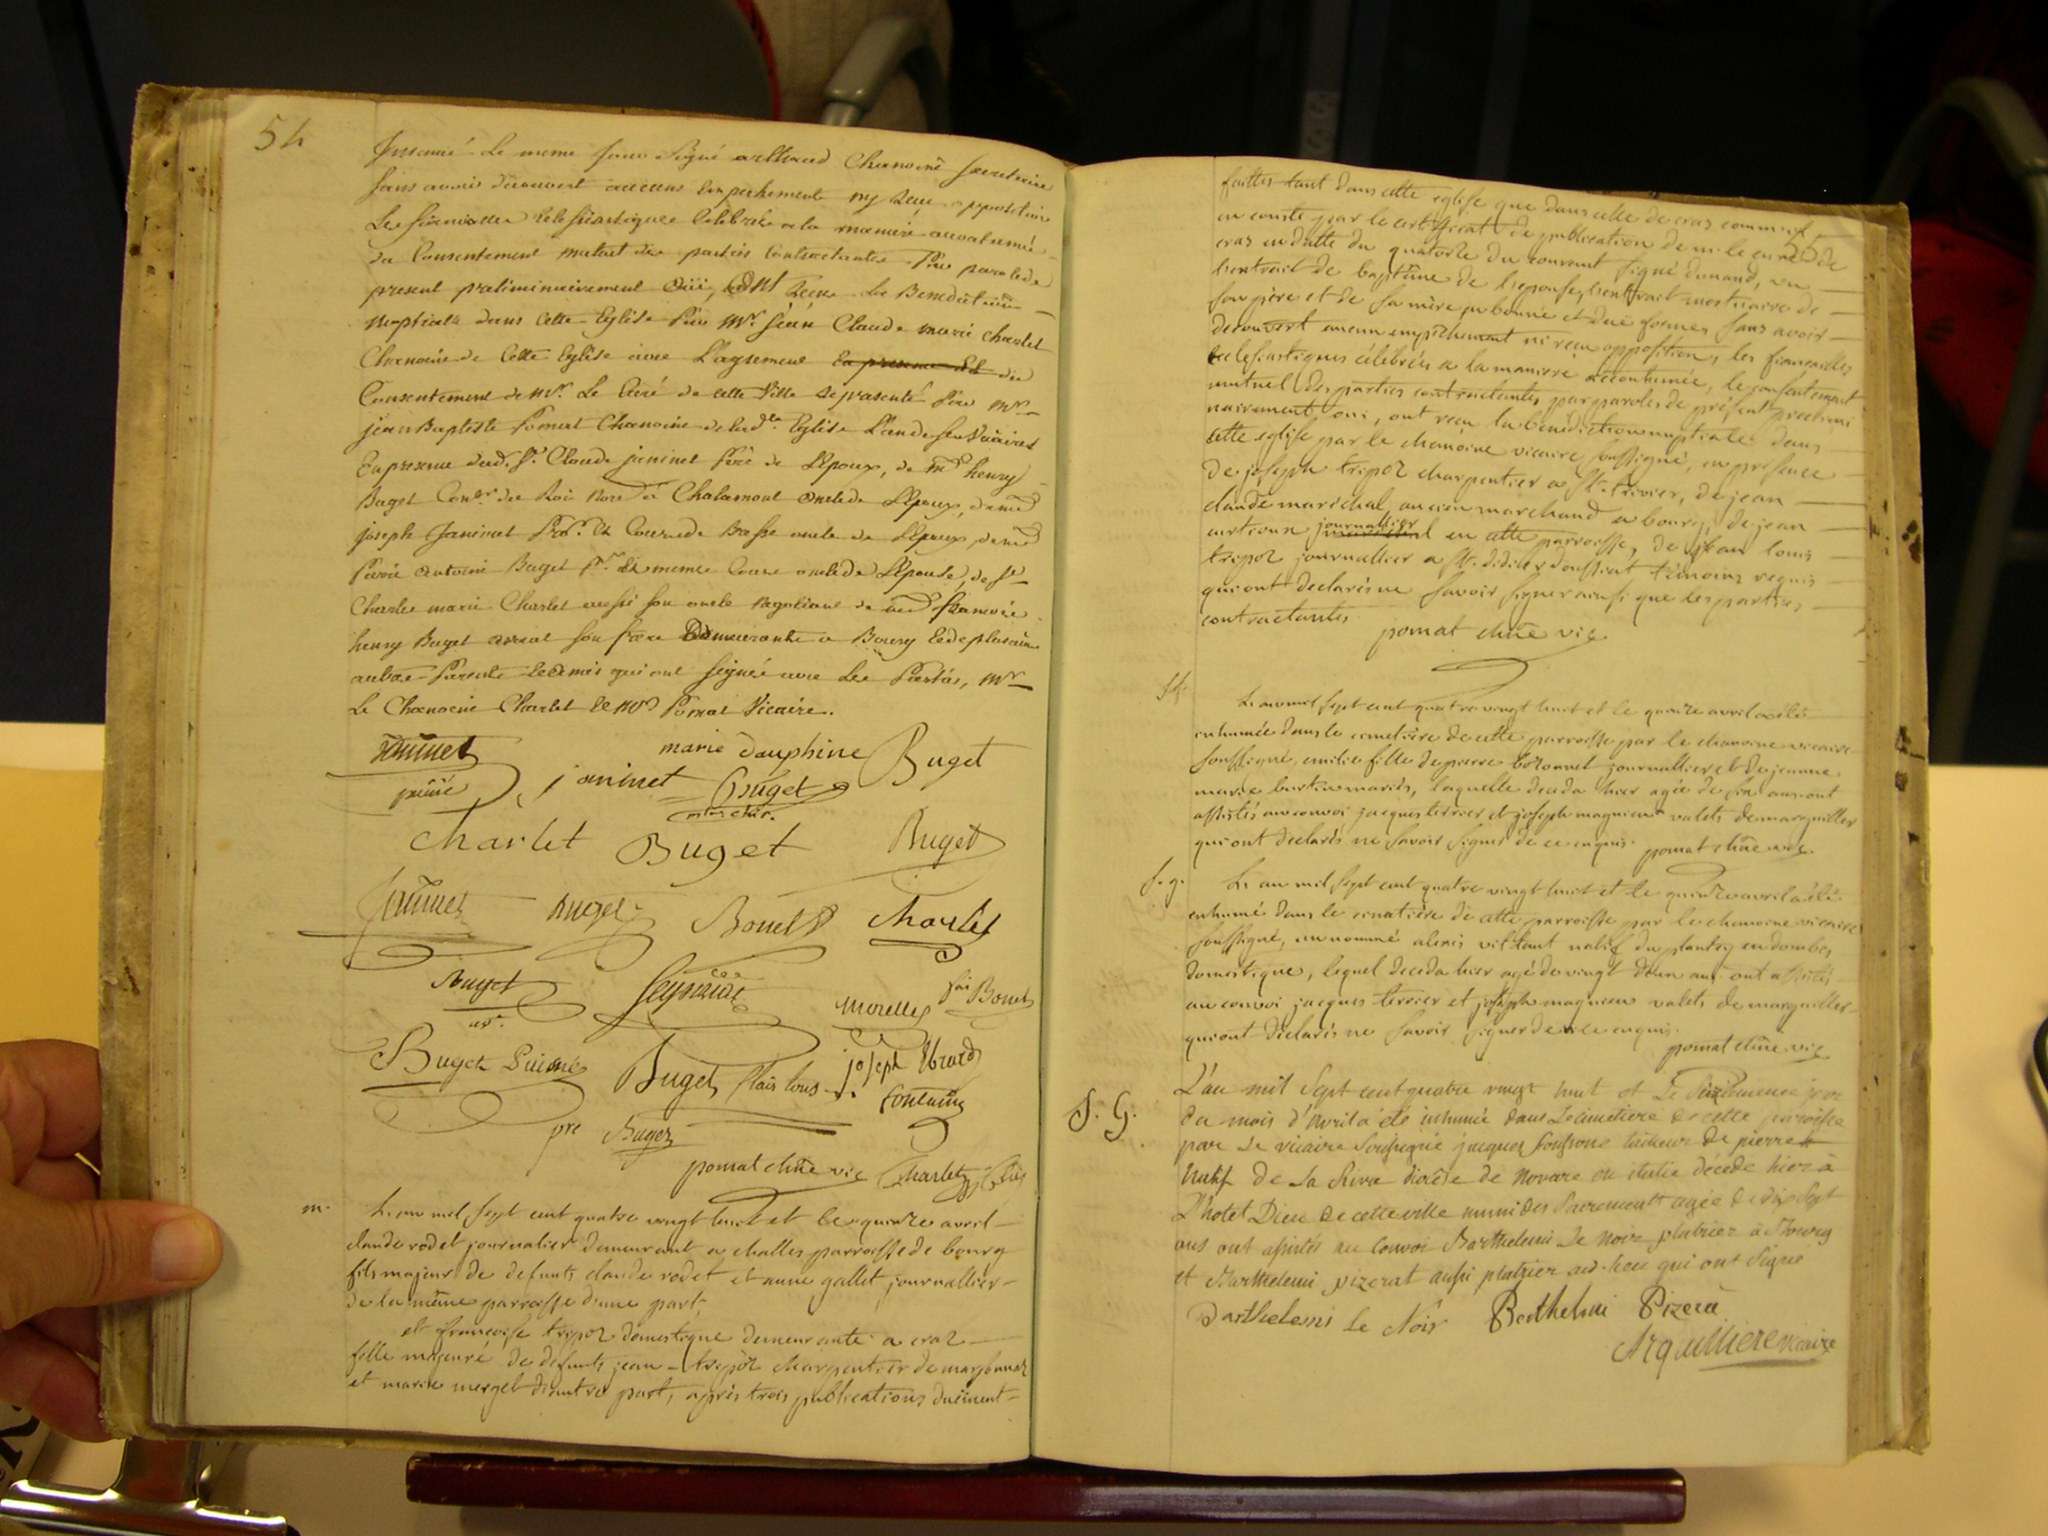 54
Insinué le meme jour Signé Chanoine Secretaire
Sans avoir decouvert aucuns Empechements ny Reçu opposition
Les fiancailles Ecclesiastiques Celebrées a la maniere accoutumée
du Consentement mutuel des parties Contractantes Par parole de
present preliminairement Oüi, ont Reçu La Benediction
Nuptiale dans Cette Eglise Par Mr. jean Claude marie charlet
Chanoine de Cette Eglise avec L'agrement En presence Et du
Consentement de Mr. Le Curé de cette Ville Representé Par Mr.
jean Baptiste Pomat Chanoine de lad.te Eglise L'un de ses Vicaires
En presence dud. Sr. Claude janinet Pere de L'Epoux, de md henry
Buget Con.er du Roi Nore à Chalamont oncle de L'Epoux, de md
joseph Janinet Pr. Et Cour de Bresse oncle de L'Epoux, de md
Pierre Antoine Buget Pr. Et meme Cour oncle de L'Epouse, de Sr
Charles marie Charlet aussi son oncle Negotiant de md françois
henry Buget avocat son frere Demeurants a Bourg Et de plusieurs
autres Parents Et amis qui ont Signé avec Les Parties, Mr
Le Chanoine Charlet Et Mr Pomat Vicaire.
Janinet marie dauphine Buget
janinet Buget
Charlet Buget Buget
Janinet Buget Bonet Charlet
Buget Morellet Bonet
Buget Puiné Buget joseph
pre Buget
pomat chne vic Charlet
m. L'an mil sept cent quatre vingt huit et le quinze avril
claude rodet journalier demeurant a challes parroisse de bourg
fils majeur de defunts claude rodet et anne gallet journallier
de la même parroisse d'une part,
et françoise tripoz domestique demeurante a craz
fille majeure de defunts jean tripoz charpentier de marsonnaz
et marie merget d'autre part, après trois publications duëment
55
faittes tant dans cette eglise que dans celle de cras comme il
en conste par le certificat de publication de m. le curé de
cras en datte du quatorze du courant signé dunand, vu
l'extrait de baptême de l'epouse, l'extrait mortuaire de
son père et de sa mère en bonne et due forme, sans avoir
decouvert aucun empêchement ni reçu opposition, les fiancailles
ecclesiastiques célébrées a la manière accoutumée, le consentement
mutuel des parties contractantes par paroles de présent prelimi
nairement oui, ont reçu la bénédiction nuptiale dans
cette eglise par le chanoine vicaire soussigné, en présence
de joseph tripoz charpentier a St. trivier, de jean
claude maréchal ancien marchand a bourg, de jean
journallier en cette parroisse, de jean louis
tripoz journallier a St. didier d'oussiat témoins requis
qui ont declarés ne savoir signer ainsi que les parties
contractantes pomat chne vic.
L'an mil sept cent quatre vingt huit et le quinze avril a été
inhumée dans le cimetière de cette parroisse par le chanoine vicaire
soussigné, emilie fille de pierre journallier et de jeanne
marie mariés, laquelle deceda hier agée de six ans ont
assistés au convoi jacques terrier et joseph magnien valets de marguillier
qui ont declarés ne savoir signer de ce enquis. pomat chne vic.
S. g. L'an mil sept cent quatre vingt huit et le quinze avril a été
inhumé dans le cimetière de cette parroisse par le chanoine vicaire
soussigné, un nommé alexis natif du plantey en dombes
domestique, lequel deceda hier agé de vingt d'eux ans ont assistés
au convoi jacques terrier et joseph magnien valets de marguillier
qui ont declarés ne savoir signer de ce enquis.
pomat chne vic
S. G. L'an mil Sept cent quatre vingt huit et Le jour
du mois d'avril a été inhumé dans Le cimetiere de cette paroisse
par Le vicaire Soussigné jacques tailleur de pierre
Natif de La Riva diocèse de Novare en italie décédé hier à
L'hotel Dieu de cette ville muni des Sacrements agée de dix Sept
ans ont assistés au Convoi Barthelemi Le Noir platrier à Bourg
et Barthelemi pizerat aussi platrier aud. lieu qui ont Signé
Barthelemi Le Noir Berthelmi Pizera
Arquilliere vicaire